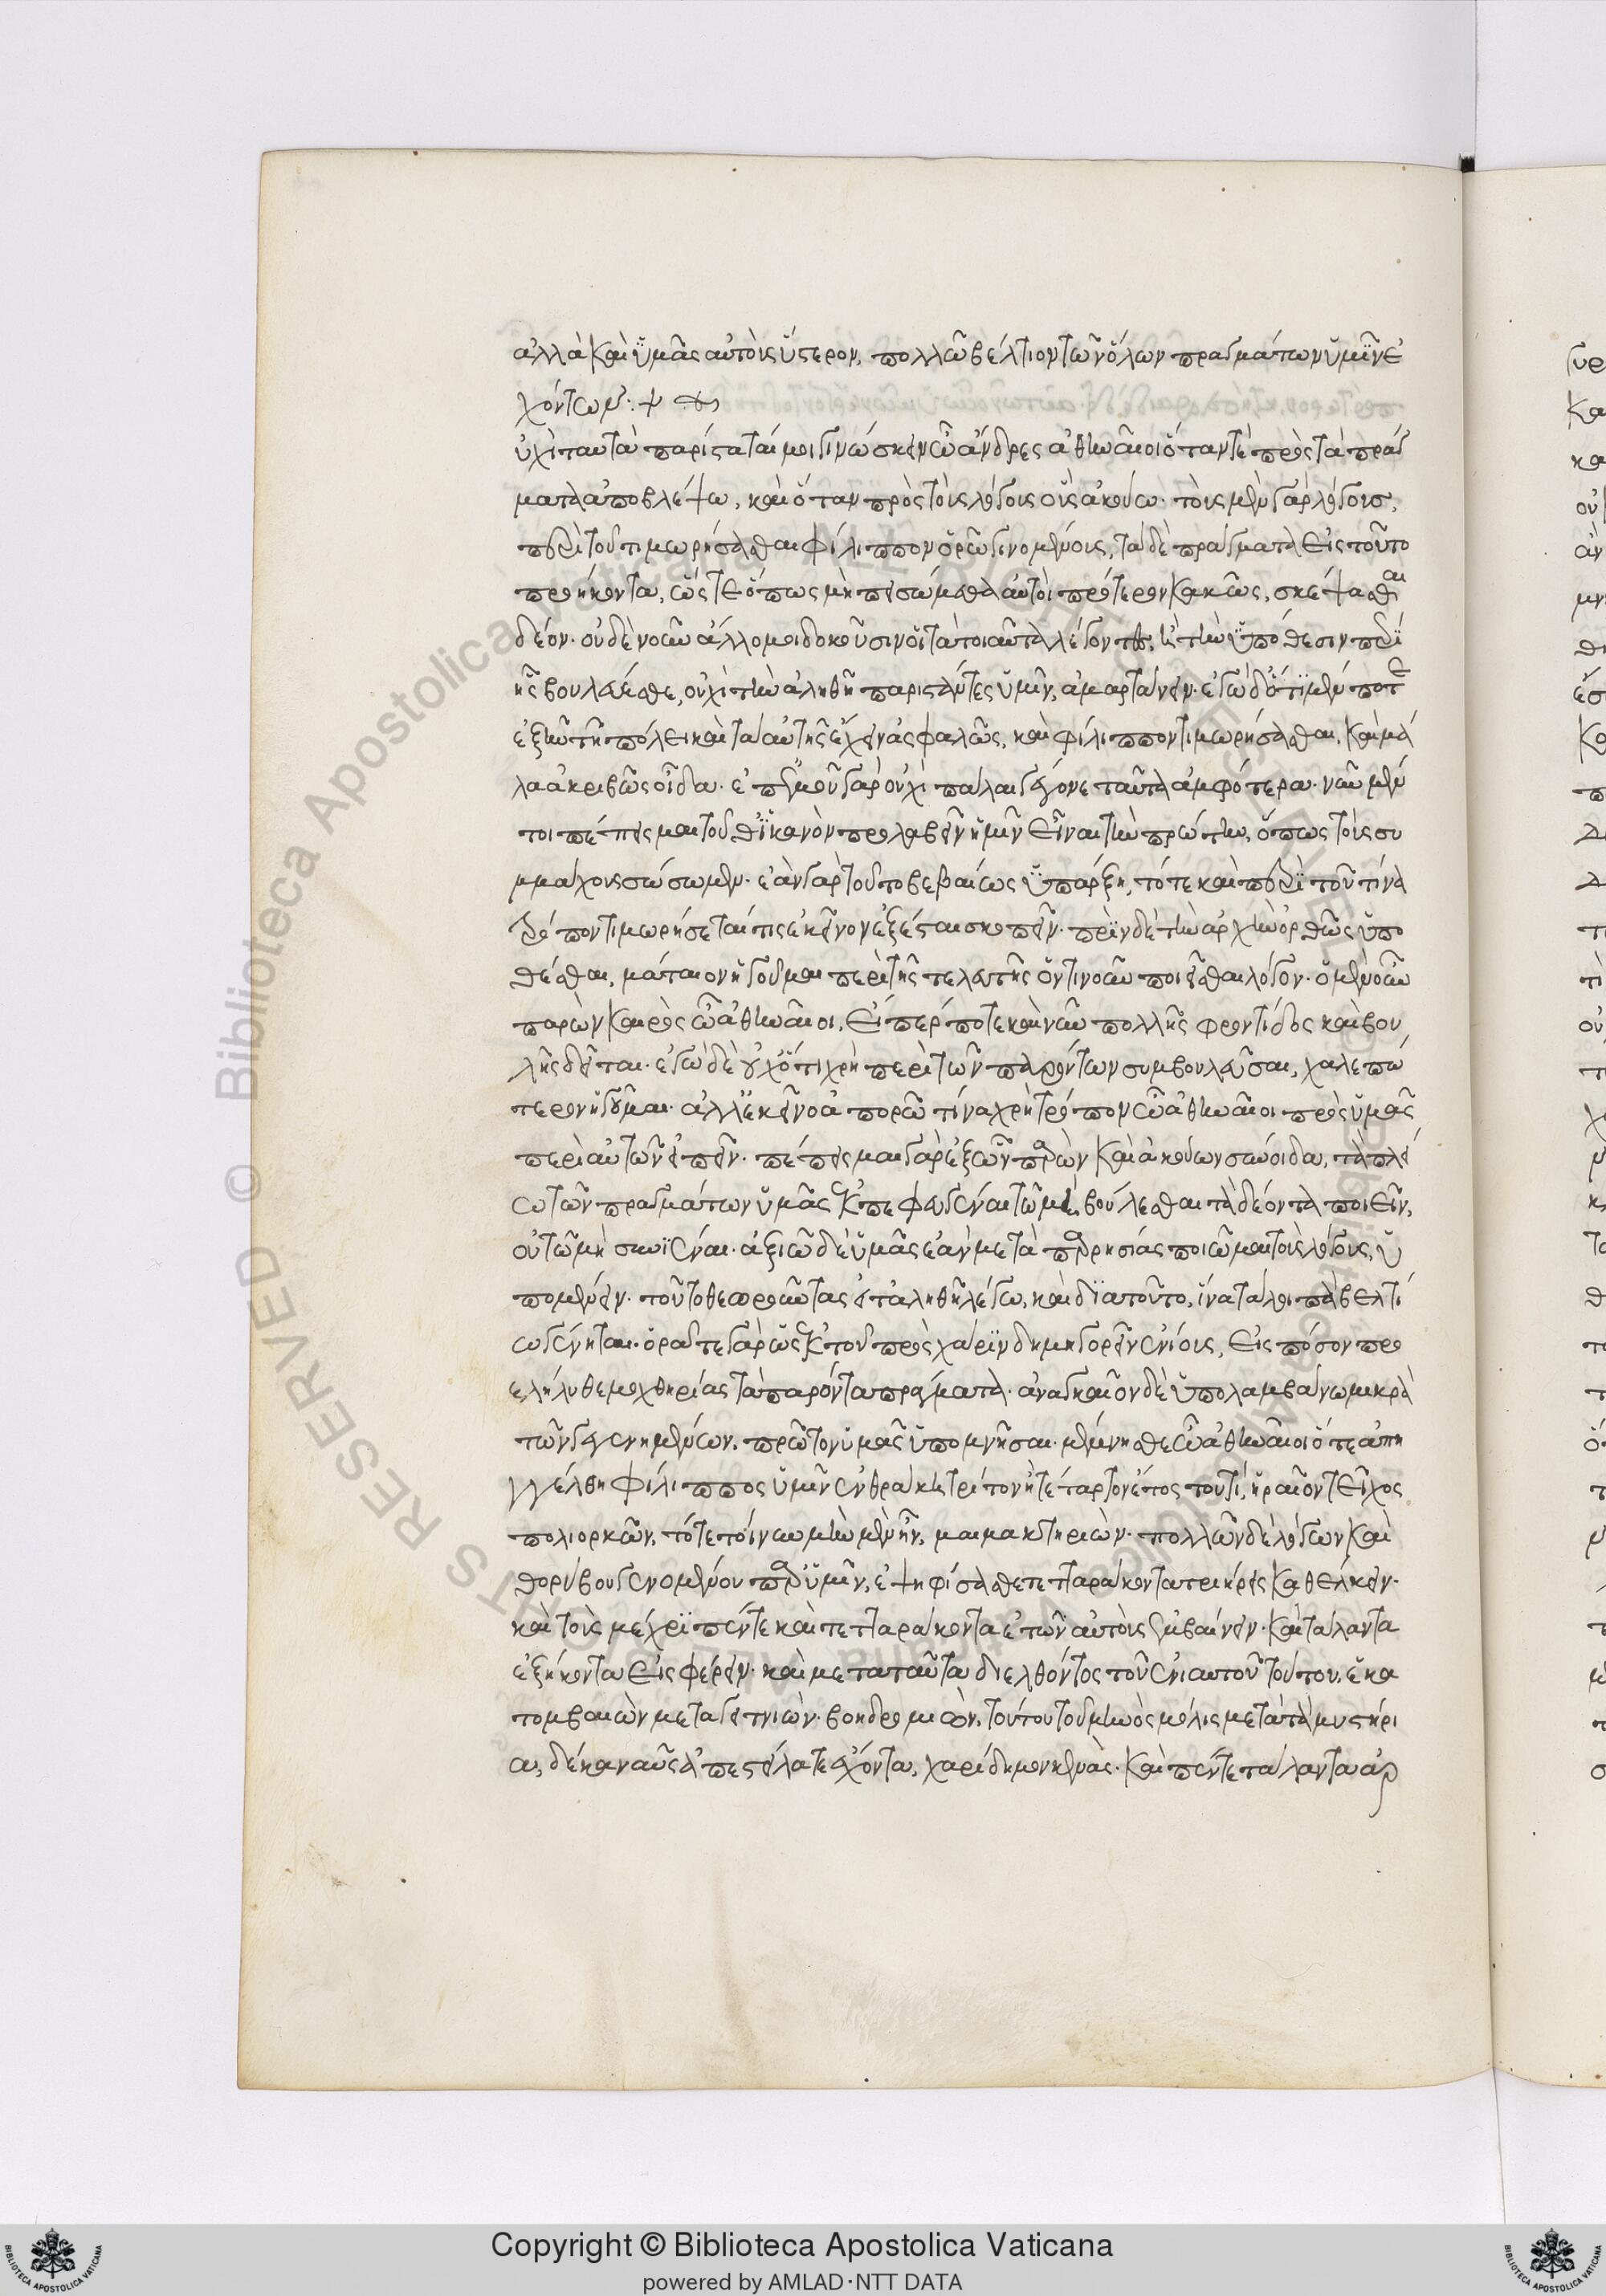 ἀλλὰ καὶ ὑμᾶς αὐτοὺς ὕστερον, πολλῶ βέλτιον τῶν ὅλων πραγμάτων ὑμῖν ἐ
χόντων:
ὐχὶ ταυτὰ παρίσταταί μοι γινώσκειν ὦ ἄνδρες ἀθηναῖοι ὅταν τὲ πρὸς τὰ πράγ
ματα ἀποβλέψω, καὶ ὅταν πρὸς τοὺς λόγους οὓς ἀκούω· τοὺς μὲν γὰρ λόγους,
περὶ τοῦ τιμωρήσασθαι φίλιππον ὁρῶ γινομένους, τὰ δὲ πράγματα εἰς τοῦτο
προήκοντα, ὥστε ὅπως μὴ πεισώμεθα αὐτοὶ πρότερον κακῶς, σκέψασθαι
δέον· οὐδὲν οὖν ἄλλο μοι δοκοῦσιν οἱ τὰ τοιαῦτα λέγοντες, ἢ τὴν ὑπόθεσιν περὶ
ἧς βουλεύεσθε, οὐχὶ τὴν ἀληθῆ παριστάντες ὑμῖν, ἁμαρτάνειν· ἐγὼ δ' ὅτι μέν ποτ'
ἐξῆν τῆ πόλει καὶ τὰ αὑτῆς ἔχειν ἀσφαλῶς, καὶ φίλιππον τιμωρήσασθαι, καὶ μά
λα ἀκριβῶς οἶδα· ἐπ' ἐμοῦ γὰρ οὐχὶ πάλαι γέγονε ταῦτα ἀμφότερα· νῦν μέν
τοι πέπεισμαι τοῦθ' ἱκανὸν προλαβεῖν ἡμῖν εἶναι τὴν πρώτην, ὅπως τοὺς συ
μμάχους σώσωμεν· ἐὰν γὰρ τοῦτο βεβαίως ὑπάρξη, τότε καὶ περὶ τοῦ τίνα
τρόπον τιμωρήσεταί τις ἐκεῖνον ἐξέσται σκοπεῖν· πρὶν δὲ τὴν ἀρχὴν ὀρθῶς ὑπο
θέσθαι, μάταιον ἡγοῦμαι περὶ τῆς τελευτῆς ὁντινοῦν ποιεῖσθαι λόγον· ὁ μὲν οὖν
παρὼν καιρὸς ὦ ἀθηναῖοι, εἴπερ ποτε καὶ νῦν πολλῆς φροντίδος καὶ βου
λῆς δεῖται· ἐγὼ δὲ οὐχ ὅτι χρὴ περὶ τῶν παρόντων συμβουλεῦσαι, χαλεπώ
τερον ἡγοῦμαι· ἀλλ' ἐκεῖνο ἀπορῶ τίνα χρὴ τρόπον ὦ ἀθηναῖοι πρὸς ὑμᾶς
περὶ αὐτῶν εἰπεῖν· πέπεισμαι γὰρ ἐξ ὧν παρὼν καὶ ἀκούων σύνοιδα, τὰ πλεί
ω τῶν πραγμάτων ὑμᾶς ἐκπεφευγέναι τῶ μὴ βούλεσθαι τὰ δέοντα ποιεῖν,
οὐ τῶ μὴ συνιέναι· ἀξιῶ δὲ ὑμᾶς ἐὰν μετὰ παρρησίας ποιῶμαι τοὺς λόγους, ὑ
πομένειν· τοῦτο θεωροῦντας εἰ τἀληθῆ λέγω, καὶ διὰ τοῦτο, ἵνα τὰ λοιπὰ βελτί
ω γένηται· ὁρᾶτε γὰρ ὡς ἐκ τοῦ πρὸς χάριν δημηγορεῖν ἐνίους, εἰς πόσον προ
ελήλυθε μοχθηρίας τὰ παρόντα πράγματα· ἀναγκαῖον δὲ ὑπολαμβάνω μικρὰ
τῶν γεγενημένων, πρῶτον ὑμᾶς ὑπομνῆσαι· μέμνησθε ὦ ἀθηναῖοι ὅτε ἀπη
γγέλθη φίλιππος ὑμῖν ἐν θράκη τρίτον ἢ τέταρτον ἔτος τουτί, ἡραῖον τεῖχος
πολιορκῶν, τότε τοίνυν μὴν μὲν ἦν, μαιμακτηριών· πολλῶν δὲ λόγων καὶ
θορύβου γενομένου παρ' ὑμῖν, ἐψηφίσασθε τετταράκοντα τριήρεις καθέλκειν·
καὶ τοὺς μέχρι πέντε καὶ τετταράκοντα ἐτῶν αὐτοὺς ἐμβαίνειν· καὶ τάλαντα
ἑξήκοντα εἰσφέρειν· καὶ μετὰ ταῦτα διελθόντος τοῦ ἐνιαυτοῦ τούτου, ἑκα
τομβαιὼν μεταγειτνιών· βοηδρομιών, τούτου τοῦ μηνὸς μόλις μετὰ τὰ μυστήρι
α, δέκα ναῦς ἀπεστείλατε ἔχοντα, χαρίδημον κενὰς· καὶ πέντε τάλαντα ἀρ
Copyright © Biblioteca Apostolica Vaticana
powered by AMLAD·NTT DATA